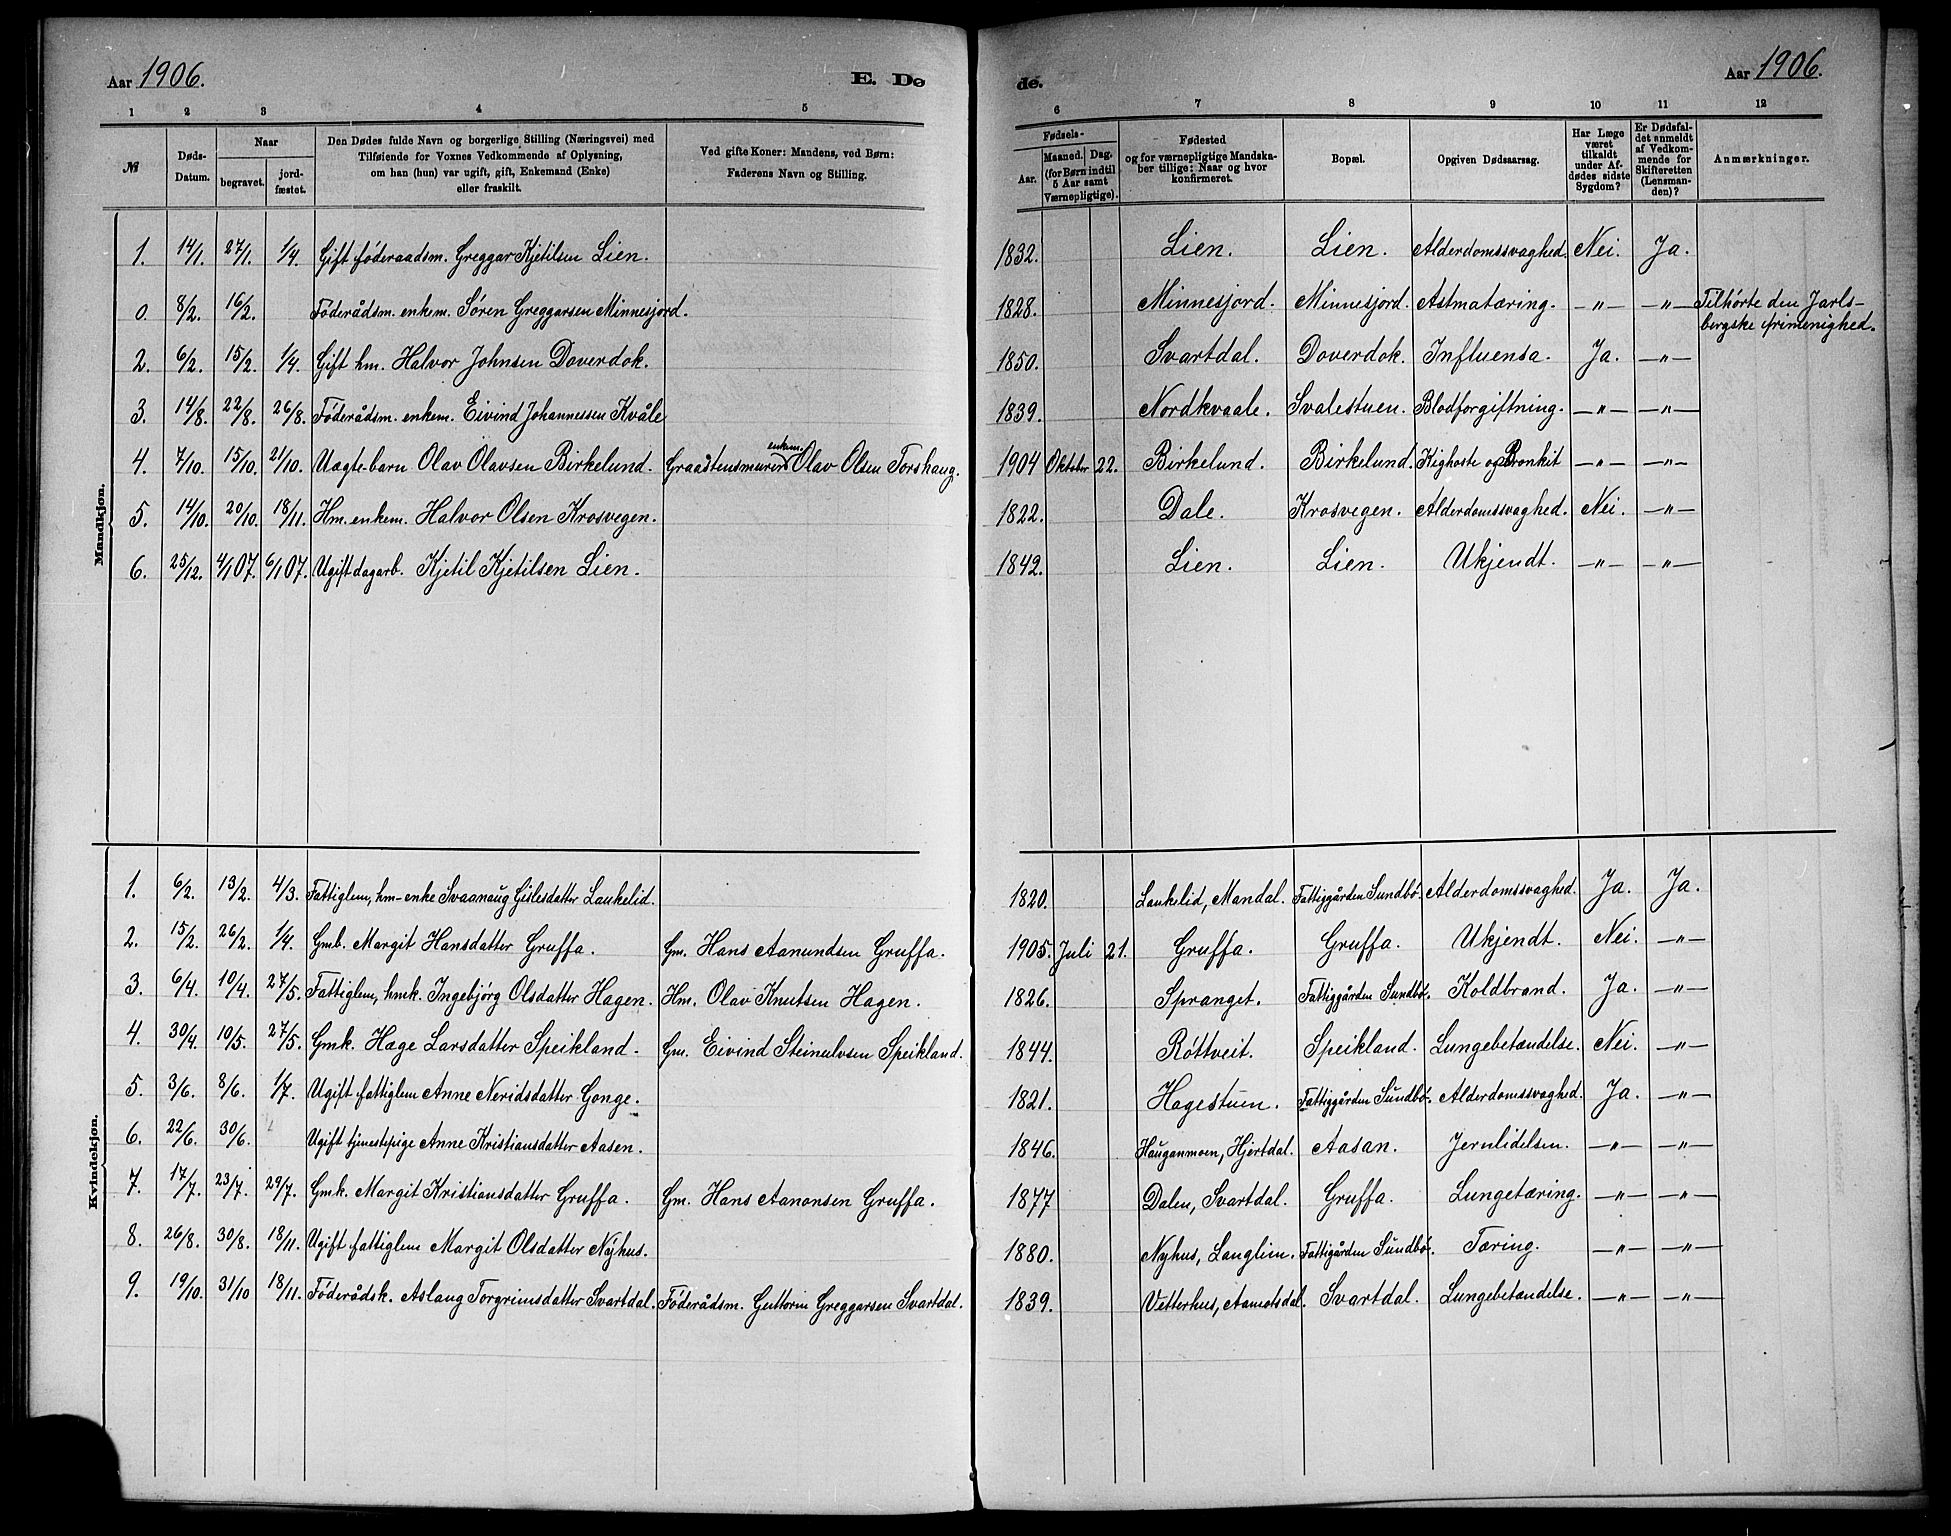 Aar 1906. E. Dø
de. Aar 1906.
1 2 3 4 5
6 7 8 9 10 11 12
№
Døds-
Datum.
Naar
begravet.
jord-
fæstet.
Den Dødes fulde Navn og borgerlige Stilling (Næringsvei) med
Tilføiende for Voxnes Vedkommende af Oplysning,
om han (hun) var ugift, gift, Enkemand (Enke)
eller fraskilt.
Ved gifte Koner: Mandens, ved Børn:
Faderens Navn og Stilling.
Fødsels-
Aar.
Maaned. Dag.
(for Børn indtil
5 Aar samt
Værnepligtige).
Fødested
og for værnepligtige Mandska-
ber tillige: Naar og hvor
konfirmeret.
Bopæl.
Opgiven Dødsaarsag.
Har Læge
været
tilkaldt
under Af-
dødes sidste
Sygdom?
Er Dødsfal-
det anmeldt
af Vedkom-
mende for
Skifteretten
(Lensman-
den)?
Anmærkninger.
Mandkjøn.
1. 14/1. 27/1. 1/4. Gift föderaadsm. Greggar Kjetilsen Lien. 1832. Lien. Lien. Alderdomssvaghed. Nei. Ja.
0. 8/2. 16/2. Föderådsm. enkem. Sören Greggarsen Minnesjord. 1828. Minnesjord. Minnesjord. Astmatæring. —"— —"— Tilhörte den Jarls-
bergske frimenighed.
2. 6/2. 15/2. 1/4. Gift hm. Halvor Johnsen Doverdok. 1850. Svartdal. Doverdok. Influensa. Ja. —"—
3. 14/8. 22/8. 26/8. Föderådsm. enkem. Eivind Johannessen Kvåle 1839. Nordkvaale. Svalestuen. Blodforgiftning. —"— —"—
4. 7/10. 15/10. 21/10. Uægte barn Olav Olavsen Birkelund. Graastensmurer enkem. Olav Olsen Torshaug. 1904 Oktober 22. Birkelund. Birkelund. Kighoste og Bronkit —"— —"—
5. 14/10. 20/10. 18/11. Hm. enkem. Halvor Olsen Krosvegen. 1822. Dale. Krosvegen. Alderdomssvaghed. Nei. —"—
6. 25/12. 4/1 07. 6/1 07. Ugift dagarb. Kjetil Kjetilsen Lien. 1842. Lien. Lien. Ukjendt. —"— —"—
Kvindekjøn.
1. 6/2. 13/2. 4/3. Fattiglem, hm-enke Svaanaug Gislesdatter Laukelid. 1820. Laukelid, Mandal. Fattiggården Sundbö. Alderdomssvaghed. Ja. Ja.
2. 15/2. 26/2. 1/4. Gmb. Margit Hansdatter Gruffa. Gm. Hans Aanundsen Gruffa. 1905. Juli 21. Gruffa. Gruffa. Ukjendt. Nei. —"—
3. 6/4. 10/4. 27/5. Fattiglem, hmk. Ingebjörg Olsdatter Hagen. Hm. Olav Knutsen Hagen. 1826. Spranget. Fattiggården Sundbö. Koldbrand. Ja. —"—
4. 30/4. 10/5. 27/5. Gmk. Hæge Larsdatter Speikland. Gm. Eivind Steinulvsen Speikland. 1844. Röttveit. Speikland. Lungebetændelse. Nei. —"—
5. 3/6. 8/6. 1/7. Ugift fattiglem Anne Neridsdatter Gonge. 1821. Hagestuen. Fattiggården Sundbö. Alderdomssvaghed. Ja. —"—
6. 22/6. 30/6. Ugift tjenestepige Anne Kristiansdatter Aasen. 1846. Hauganmoen, Hjertdal. Aasan. Jernlidelsen. —"— —"—
7. 17/7. 23/7. 29/7. Gmk. Margit Kristiansdatter Gruffa. Gm. Hans Aanonsen Gruffa. 1877 Dalen, Svartdal. Gruffa. Lungetæring. —"— —"—
8. 26/8. 30/8. 18/11. Ugift fattiglem Margit Olsdatter Nyhus. 1880. Nyhus, Langlim. Fattigården Sundbö. Tæring. —"— —"—
9. 19/10. 31/10 18/11. Föderådsk. Aslaug Torgrimsdatter Svartdal. Föderådsm. Guttorm Greggarsen Svartdal. 1839. Vetterhus, Aamotsdal. Svartdal. Lungebetændelse. —"— —"—